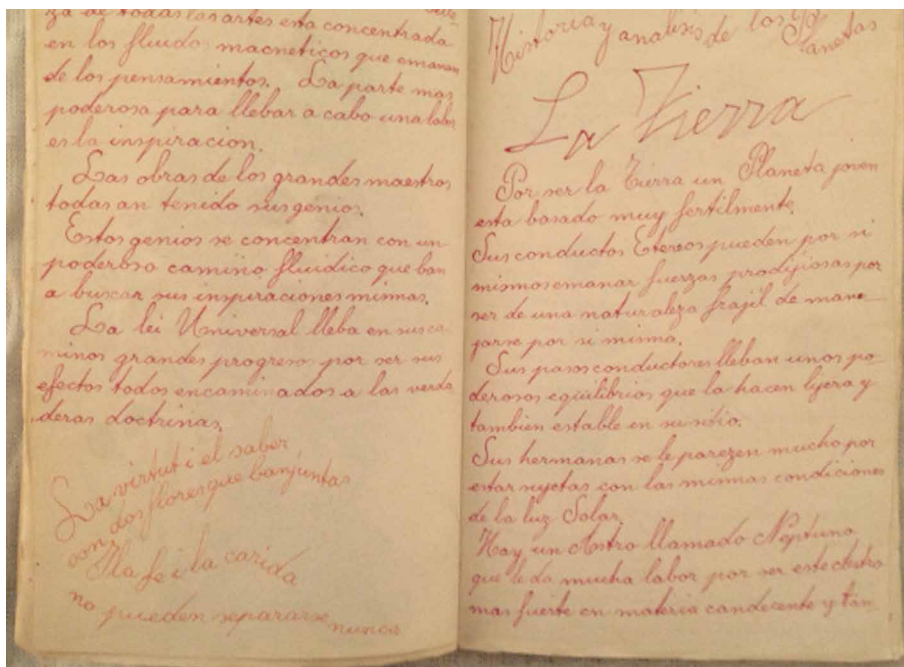 za de todas las artes esta concentrada
en los fluido macneticos que emanan
de los pensamientos. La parte mas
poderosa para llebar a cabo una labor
es la inspiracion.
Las obras de los grandes maestros
todas an tenido sus genios.
Estos genios se concentran con un
poderoso camino fluidico que ban
a buscar sus inspiraciones mismas.
La lei Universal lleba en sus ca
minos grandes progresos por ser sus
efectos todos encaminados a las verda
deras doctrinas.
La virtut i el saber
son dos flores que ban juntas
I la fe i la carida
no pueden separarse nunca
Historia y analisis de los Planetas
La Tierra
Por ser la Tierra un Planeta joven
esta basado muy fertilmente.
Sus conductos Etereos pueden por si
mismos emanar fuerzas prodijiosas por
ser de una naturaleza frajil de mane-
jarse por si misma.
Sus pasos conductores lleban unos po-
derosos equilibrios que la hacen lijera y
tambien estable en su sitio.
Sus hermanas se le parezen mucho por
estar sujetas con las mismas condiciones
de la luz Solar.
Hay un Astro llamado Neptuno
que le da mucha labor por ser este Astro
mas fuerte en materia candecente y tan